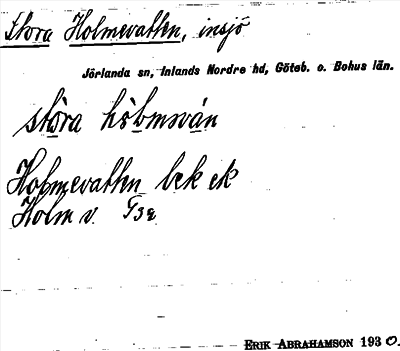 Stora Holmevatten, insjö
Jörlanda sn, Inlands Nordre hd, Göteb. o. Bohus län.
stòra hòbmsván
Holmevatten bek ek
Holm v. G32
ERIK ABRAHAMSON 1930.